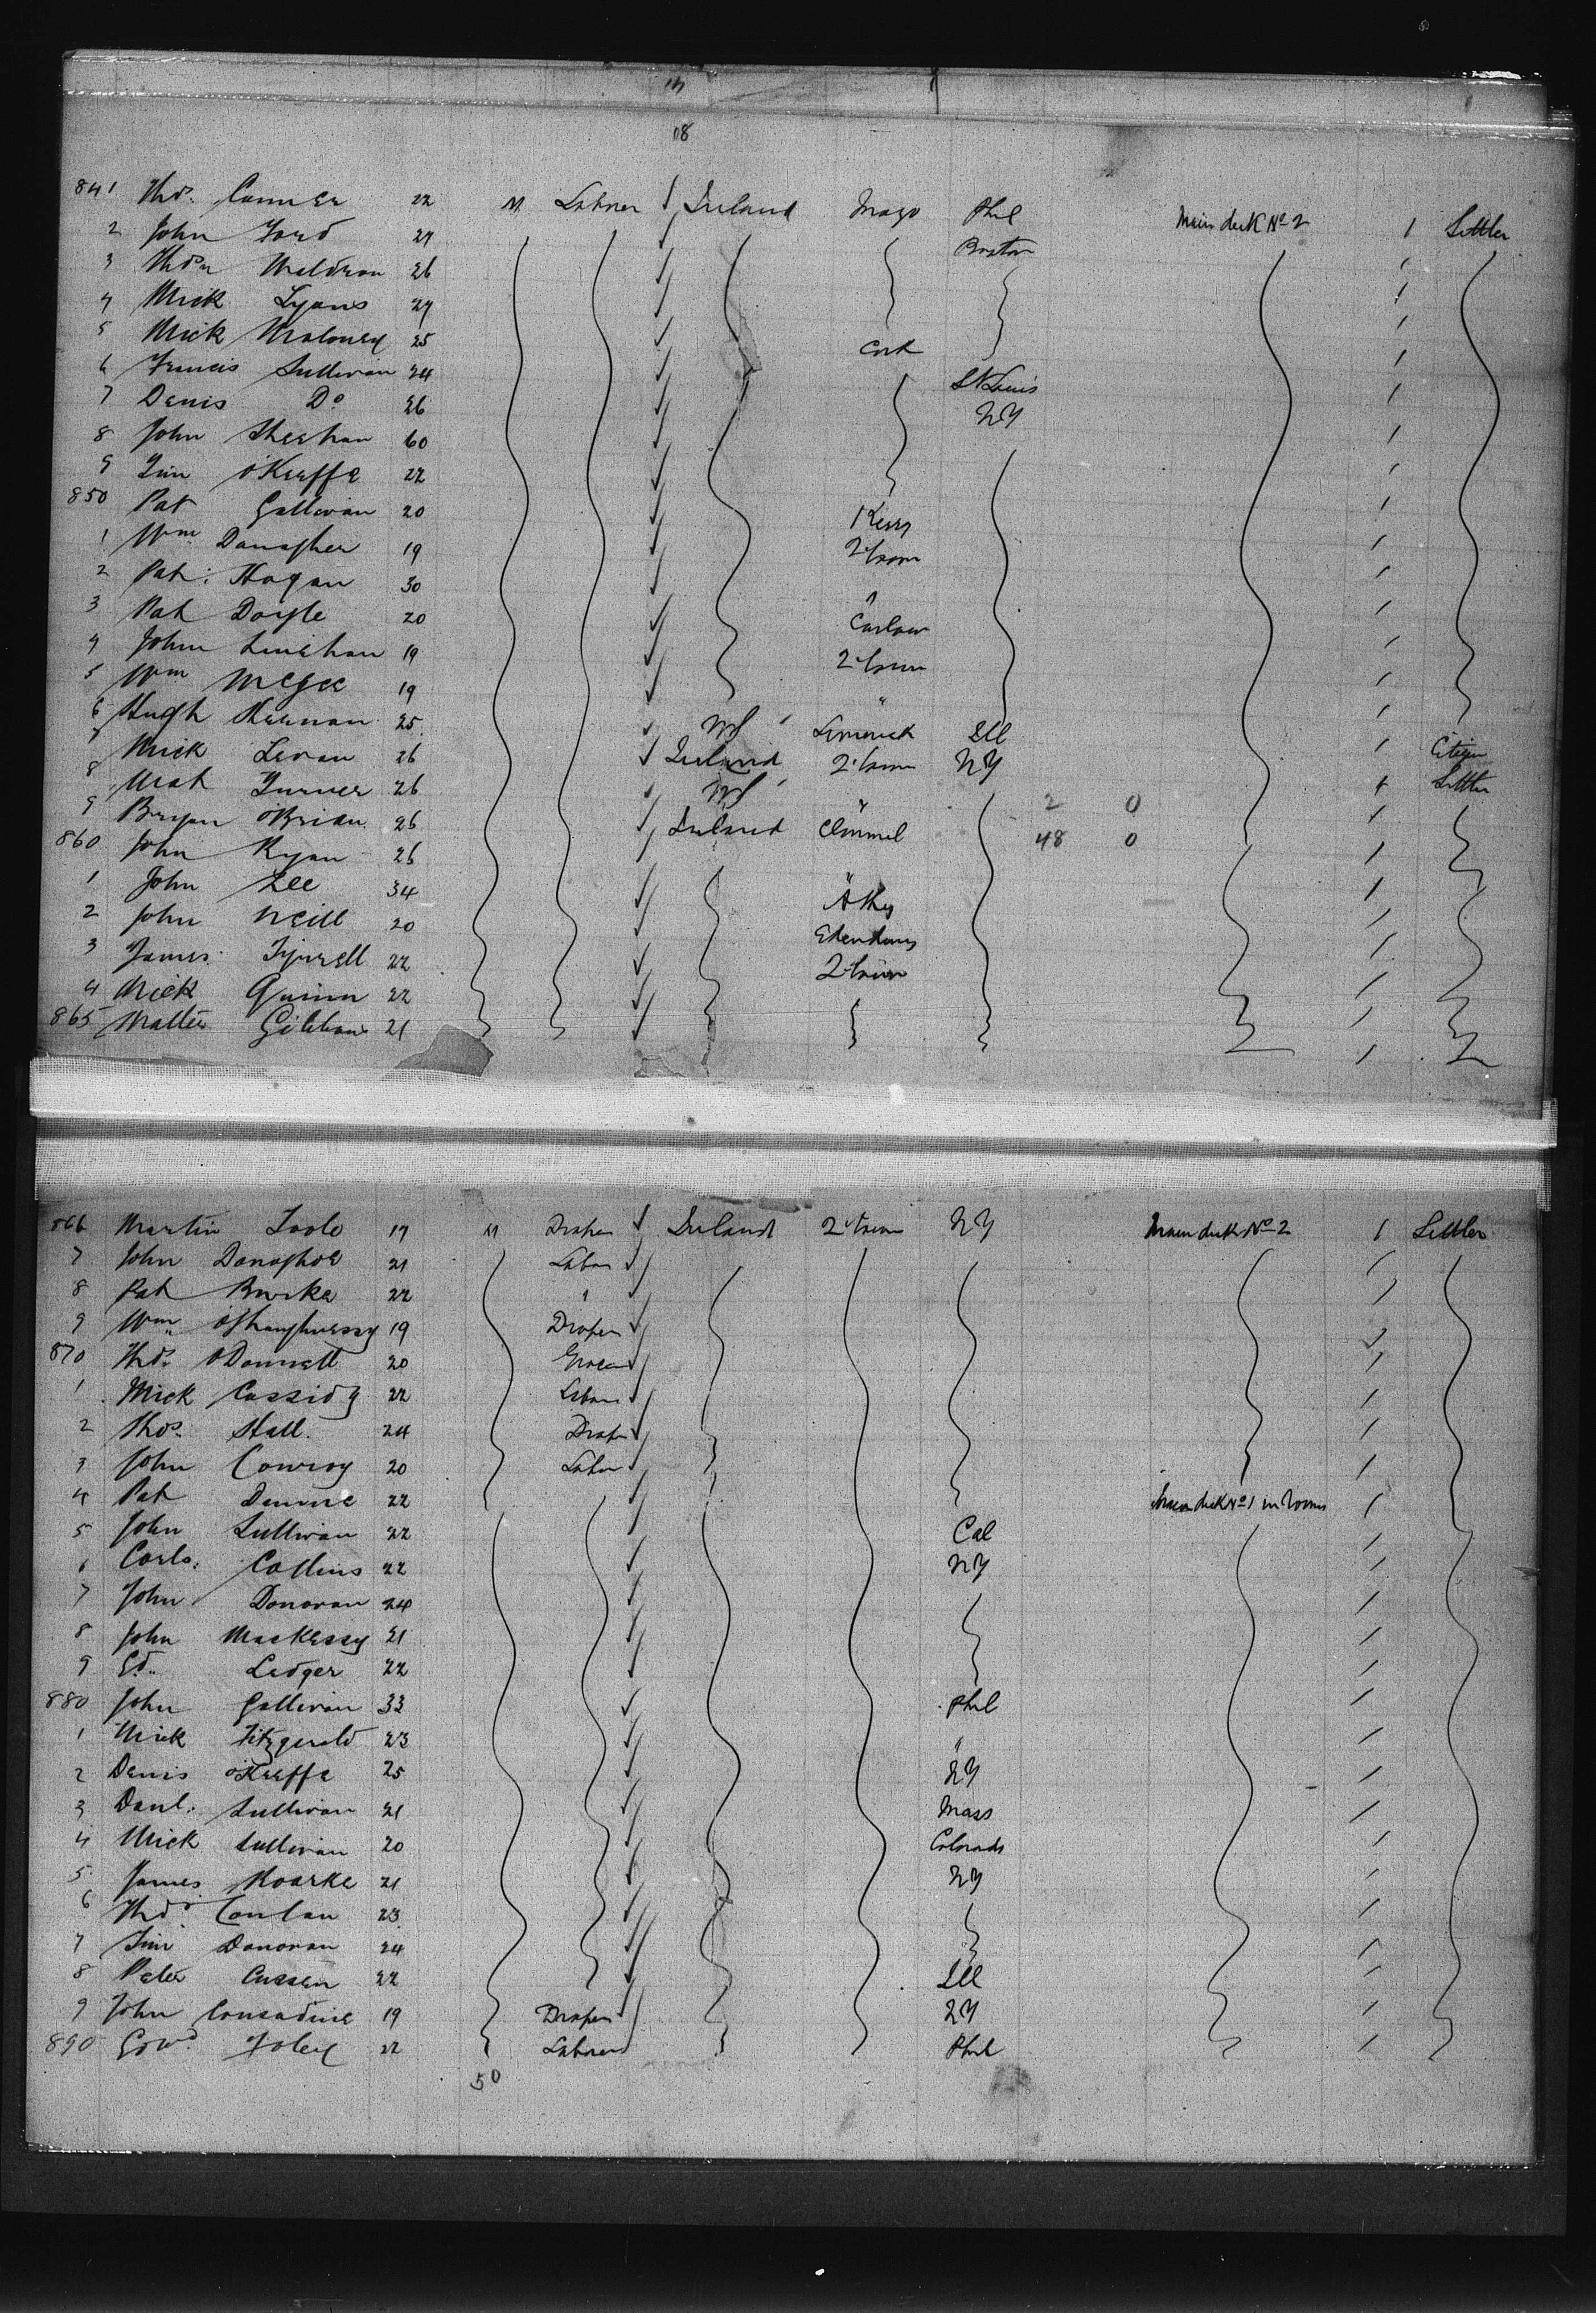 18
841 Thos. Conner 22 M Labrer Ireland Mayo Phil Main deck No 2 1 Settler
2 John Ford 27 Boston
3 Thos Waldron 26
4 Mick Lyons 27
5 Mick Maloney 25 Cork
6 Francis Sullivan 24 St Louis
7 Denis Do 26 NY
8 John Sheehan 60
9 Tim O'Keeffe 22
850 Pat Gallivan 20 Kerry
1 Wm Danagher 19 Q.town
2 Pat. Hogan 30 "
3 Pat Doyle 20 Carlow
4 John Linehan 19 Q.town
5 Wm McGee 19 "
6 Hugh Heenan 25 US Limerick Ill
7 Mick Levan 26 Ireland Q.town NY Citizen
8 Mat Turner 26 US " Settler
9 Bryan O'Brien 26 Ireland Clonmel 2 0
860 John Ryan 26 " 48 0
1 John Lee 34 Athy
2 John Neill 20 Edenderry
3 James Tyrrell 22 Q.town
4 Mick Quinn 22
865 Gibbons 21
866 Martin Toole 19 M Draper Ireland Q.town NY Main deck No 2 1 Settler
7 John Donaghoe 21 Labor
8 Pat Burke 22 "
9 Wm O'Shaughnessy 19 Draper
870 Thos. O'Donnell 20 Grocer
1 Mick Cassidy 22 Labor
2 Thos. Hall. 24 Draper
3 John Conroy 20 Labor
4 Pat Dunne 22 Main deck No 1 in rooms
5 John Sullivan 22 Cal
6 Corls. Collins 22 NY
7 John Donovan 24
8 John Mackessy 21
9 Ed. Ledger 22
880 John Gallivan 33 Phil
1 Mick Fitzgerald 23 "
2 Denis O'Keeffe 25 NY
3 Danl. Sullivan 21 Mass
4 Mick Sullivan 20 Colorado
5 James Roarke 21 NY
6 Thos. Conlan 23
7 Tim Donovan 24
8 Peter Cussen 22 Ill
9 John Consadine 19 Draper NY
890 Edwd. Foley 22 Laborer Phil
50